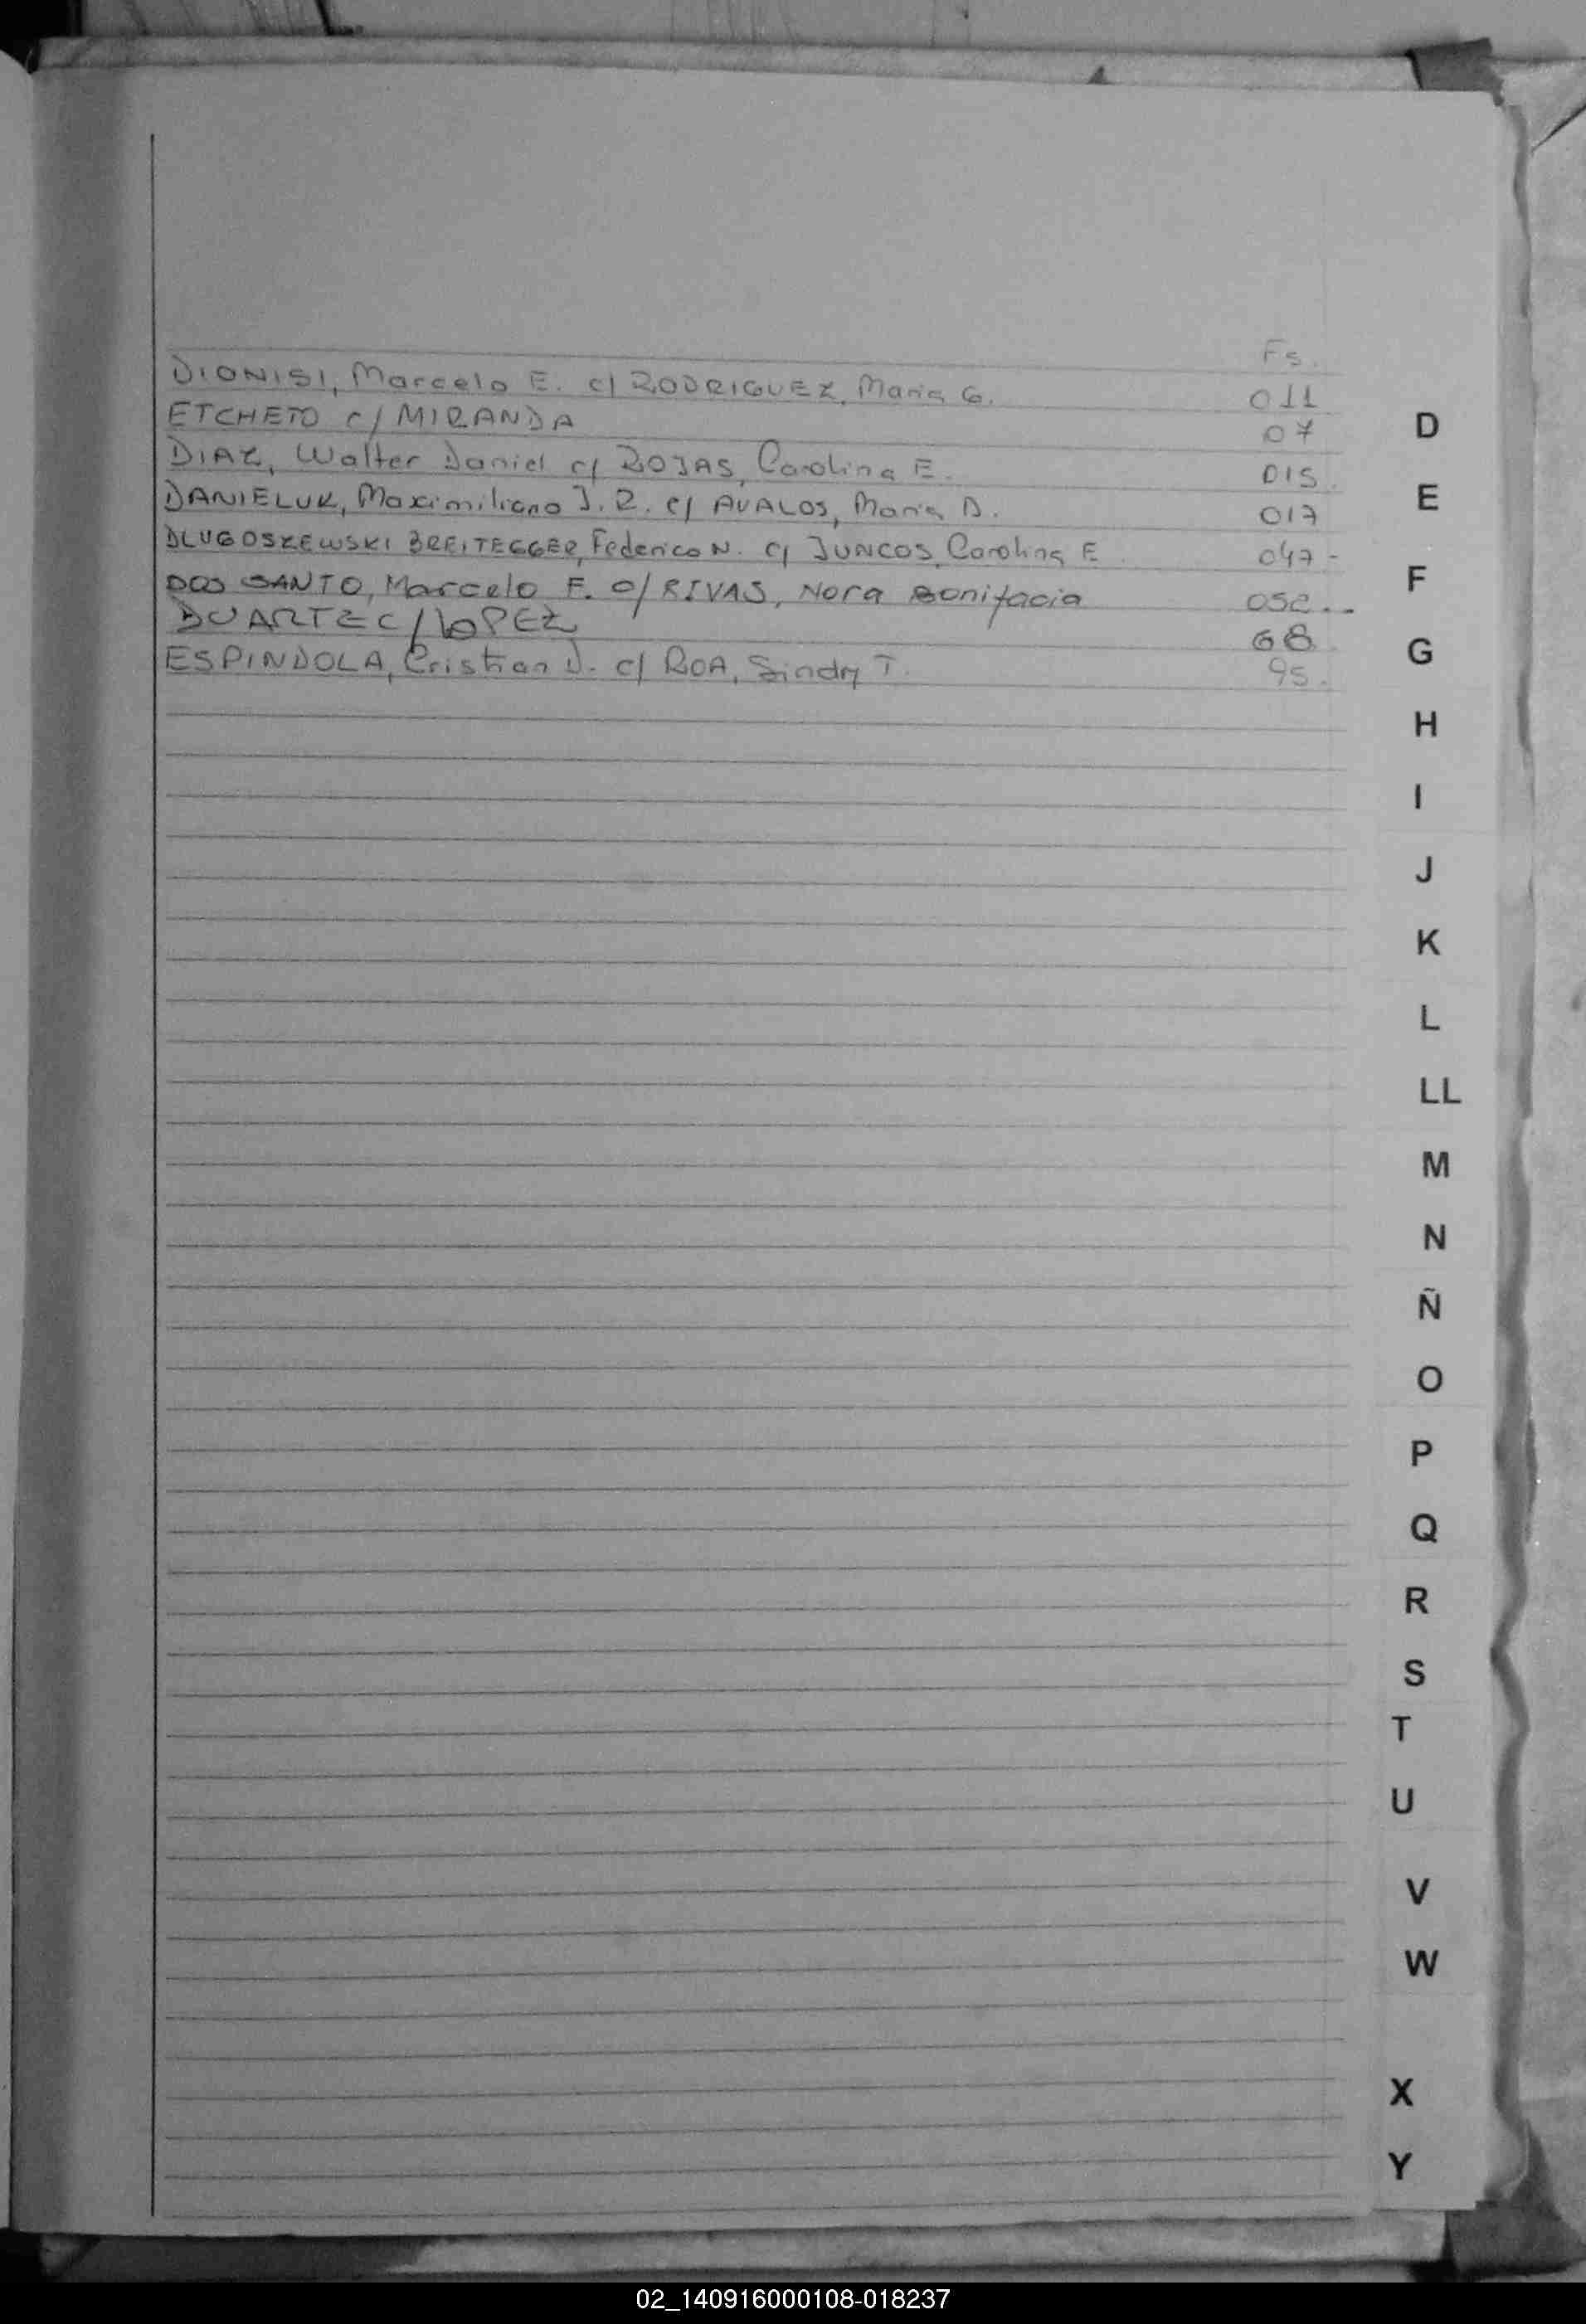 Fs.
DIONISI, Marcelo E. c/ RODRIGUEZ, Maria G. 011
ETCHETO c/ MIRANDA 07
DIAZ, Walter Daniel c/ ROJAS, Carolina E. 015.
DANIELUK, Maximiliano J. R. c/ AVALOS, Maria D. 017
DLUGOSZEWSKI BREITEGGER, Federico N. c/ JUNCOS, Carolina E 047-
DOS SANTO, Marcelo F. c/ RIVAS, Nora Bonifacia 052..
DUARTE C/ LOPEZ 68
ESPINDOLA, Cristian D. c/ ROA, Sindy T. 95.
D
E
F
G
H
I
J
K
L
LL
M
N
Ñ
O
P
Q
R
S
T
U
V
W
X
Y
02_140916000108-018237